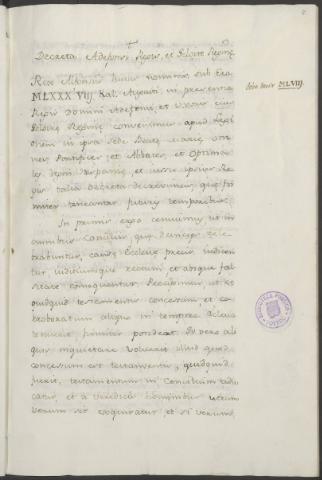 Decreta Adefonsi Regis, et Geloire Regine
Rege Alfonsi huius nominis, sub Era
MLXXXVIIJ. Kal. Augusti in presentia
Regis Domini Adefonsi, et Uxoris eius
Geloire Regine convenimus apud Legi
onem in ipsa sede Beate Marie om
nes Pontifices, et Abbates, et Optima
tes Regni Hispanie, et iussu ipsius Re
gis talia decreta decrevimus, que fir
miter teneantur futuris temporibus.
In primis ergo censuimus ut in
omnibus Conciliis, que deinceps cele
brabuntur, cause Ecclesie prius iudicen
tur, iudiciumque rectum et absque fal
sitate consequantur. Precipimus, ut et
quidquid testamentis concessum et co
rroboratum aliquo in tempore Ecclesia
tenuerit, firmiter possideat. Si vero ali
quis inquietare voluerit illud quod
concessum est testamentis, quidquid
fuerit, testamentum in Concilium adu
catur, et a veridicis hominibus utrum
verum sit exquiratur, et si verum,
MLVIIJ.